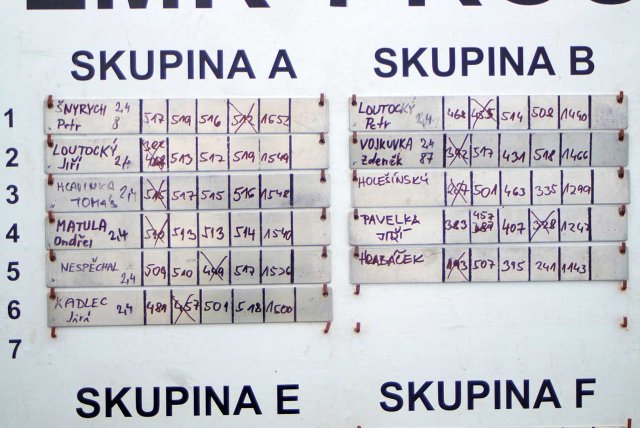 SKUPINA A
SKUPINA B
1 ŠNYRYCH 2,4 517 519 516 512 1552
Petr 8
LOUTOCKÝ 468 455 514 508 1490
Petr 2,4
2 LOUTOCKÝ 513 517 519 1549
Jiří 2,4
VOJKUVKA 2,4 392 517 431 518 1466
Zdeněk 87
3 HLAVINKA 2,4 515 517 515 516 1548
TOMÁŠ
HOLEŠÍNSKÝ 287 501 463 335 1299
4 MATULA 2,4 510 513 513 514 1540
Ondřej
PAVELKA 383 457 407 328 1247
JIŘÍ 387
5 NESPĚCHAL 509 510 499 517 1526
2,4
HRABÁČEK 193 507 395 241 1143
6 KADLEC 2,4 481 457 501 518 1500
Jiří
7
SKUPINA E
SKUPINA F